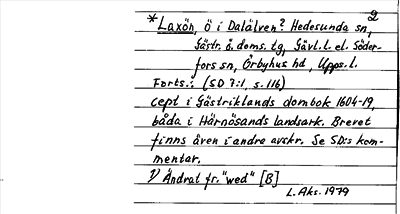 2
*Laxön, ö i Dalälven? Hedesunda sn,
Gästr. ö. doms. tg, Gävl. l. el. Söder-
fors sn, Örbyhus hd, Upps. l.
Forts.: (SD 7:1, s. 116)
cept i Gästriklands dombok 1604-19,
båda i Härnösands landsark. Brevet
finns även i andra avskr. Se SD:s kom-
mentar.
1) Ändrat fr. "wed" [B]
L. Aks. 1979